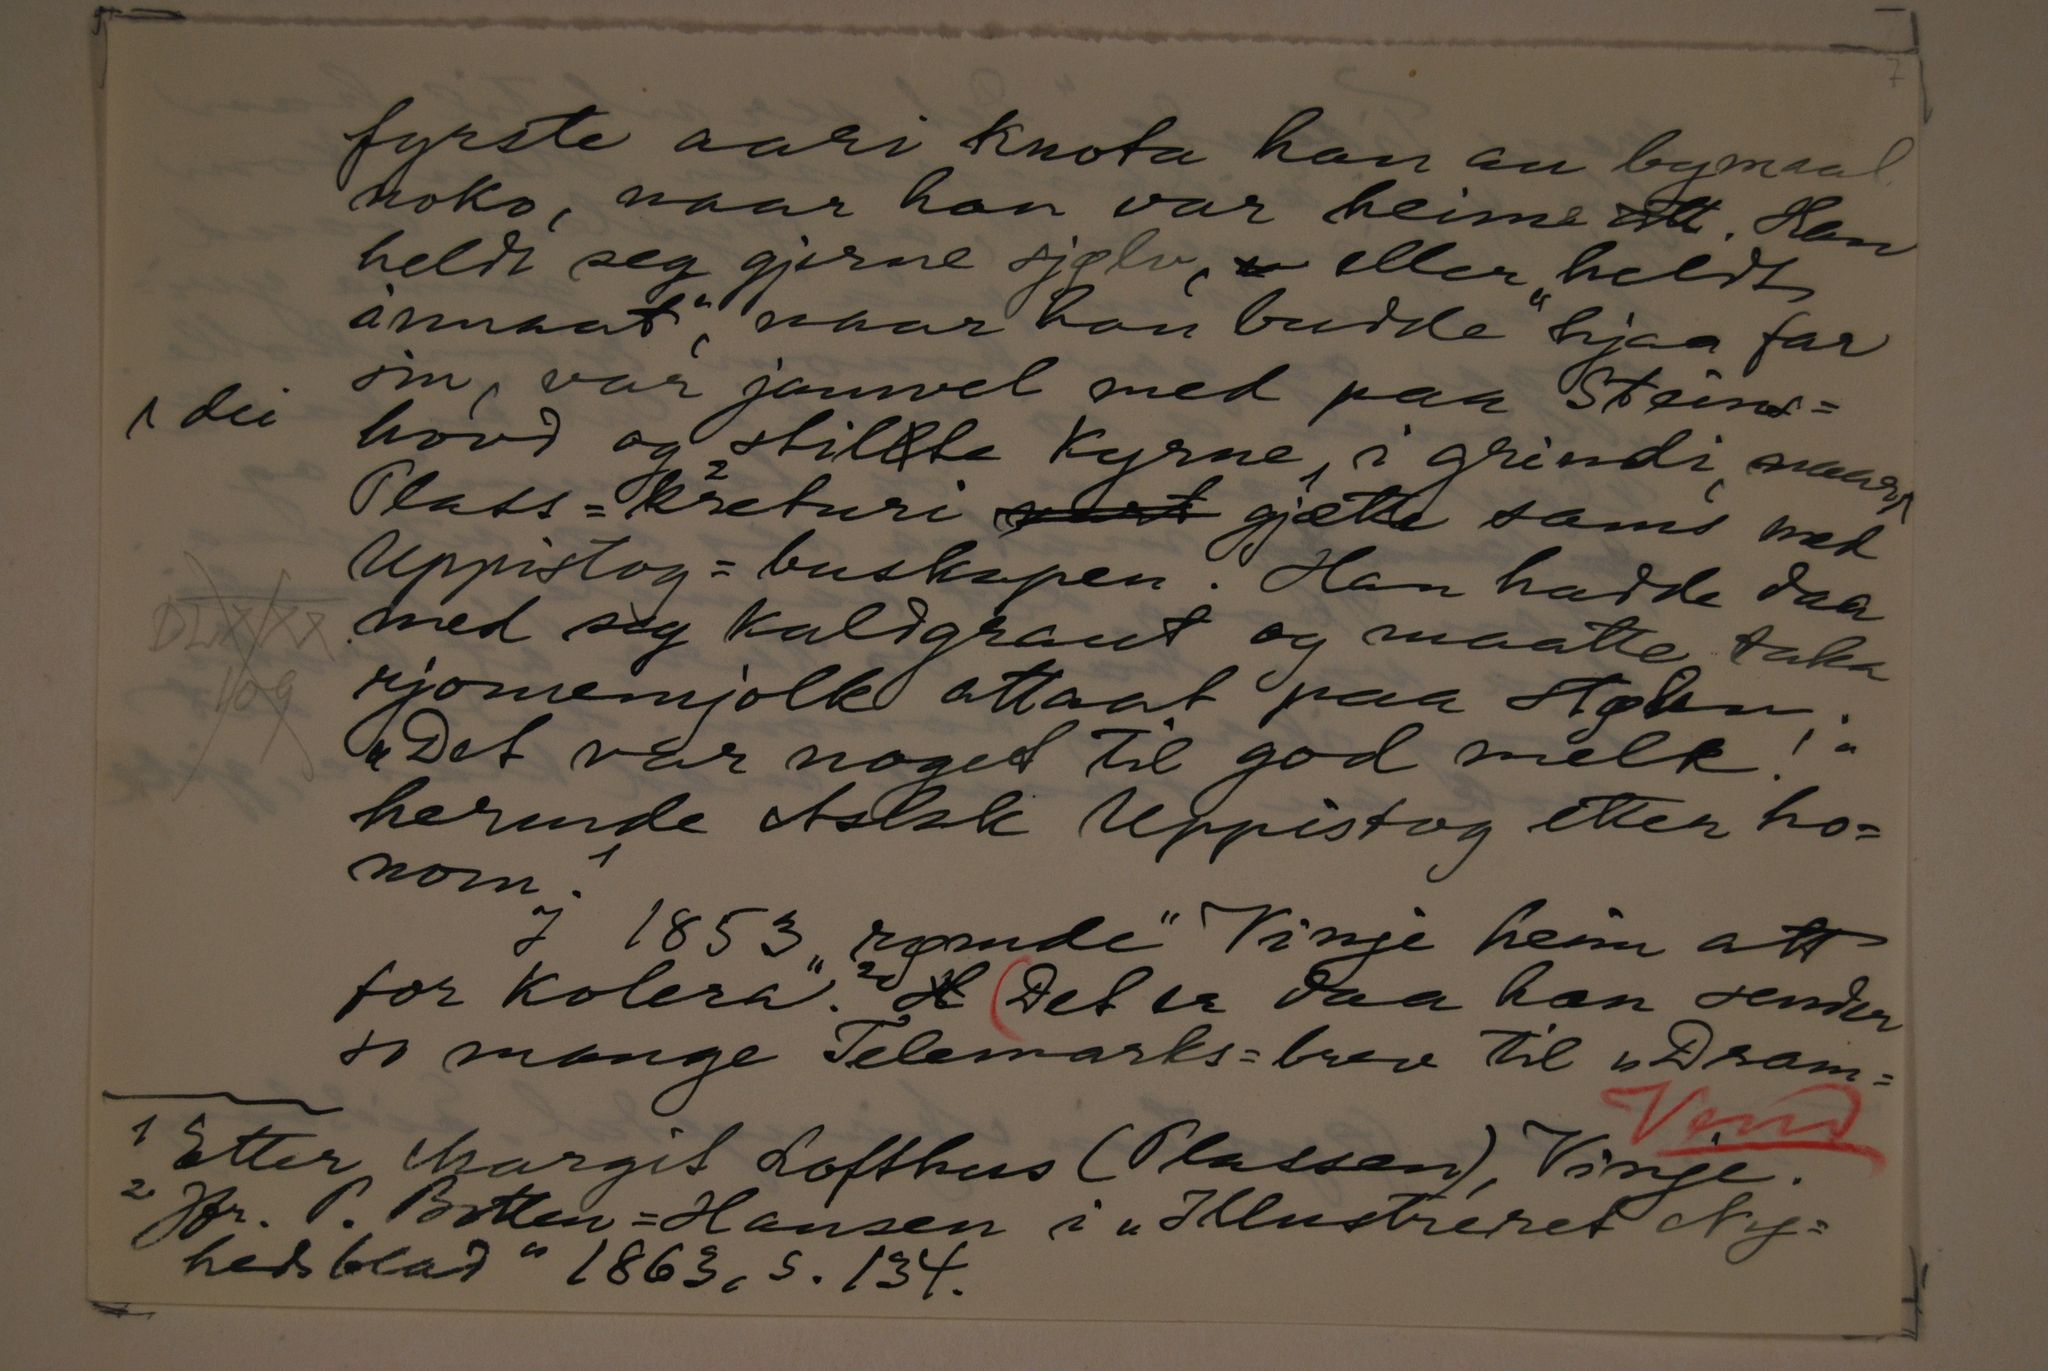 7
fyrste aari knota han au bymaal
noko, naar han var heime att. Han
heldt seg gjerne sjølv, eller „heldt
ánnaat“, naar han budde hjaa far
sin, var jamvel med paa Steins=
hovd og stillte kyrne i grindi, naar
dei
Plass=kreturi vart gjætte sams med
Uppistog=buskapen. Han hadde daa
med seg kaldgraut og maatte taka
DLXXXX
109
rjomemjolk attaat paa stølen.
„Det var noget til god melk!“
hermde Aslak Uppistog etter ho=
nom.1
I 1853 „rømde“ Vinje heim att
for kolera“.2 (Det er daa han sender
so mange Telemarks=brev til „Dram=
Vend
1 Etter Margit Lofthus (Plassen), Vinje.
2 Jfr. P. Botten=Hansen i „Illustreret Ny=
hedsblad“ 1863, s. 134.